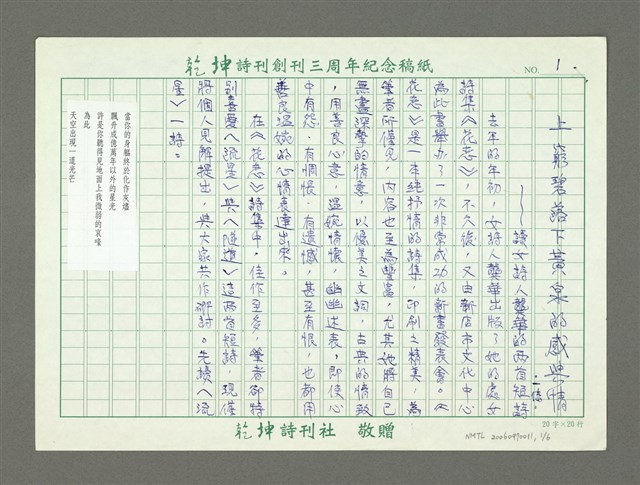 乾坤詩刊創刊三周年紀念稿紙
NO. 1.
上窮碧落下黃泉的感與情
——讀女詩人龔華的兩首短詩
去年的年初，女詩人龔華出版了她的處女
詩集《花戀》，不久後，又由新店市文化中心
為此書舉办了一次非常成功的新書發表會。《
花戀》是一本純抒情的詩集，印刷之精美，為
筆者所僅見，內容也至為豐富，尤其她將自己
無盡深摯的情意，以優美之文詞，古典的情致
，用善良心意，溫婉情懷，幽幽述表，即使心
中有怨、有惆悵、有遺憾，甚至有恨，也都用
善良溫婉的心情表達出來。
在《花戀》詩集中，佳作至多，筆者卻特
別喜愛〈流星〉與〈隧道〉這兩首短詩，現僅
將個人見解提出，與大家共作研討。先讀〈流
星〉一詩。
當你的身軀終於化作灰燼
飄升成億萬年以外的星光
許是你聽得見地面上我微弱的哀嚎
為此
天空出現一道光芒
乾坤詩刊社 敬贈
20字×20行
NMTL 20060990011, 1/6